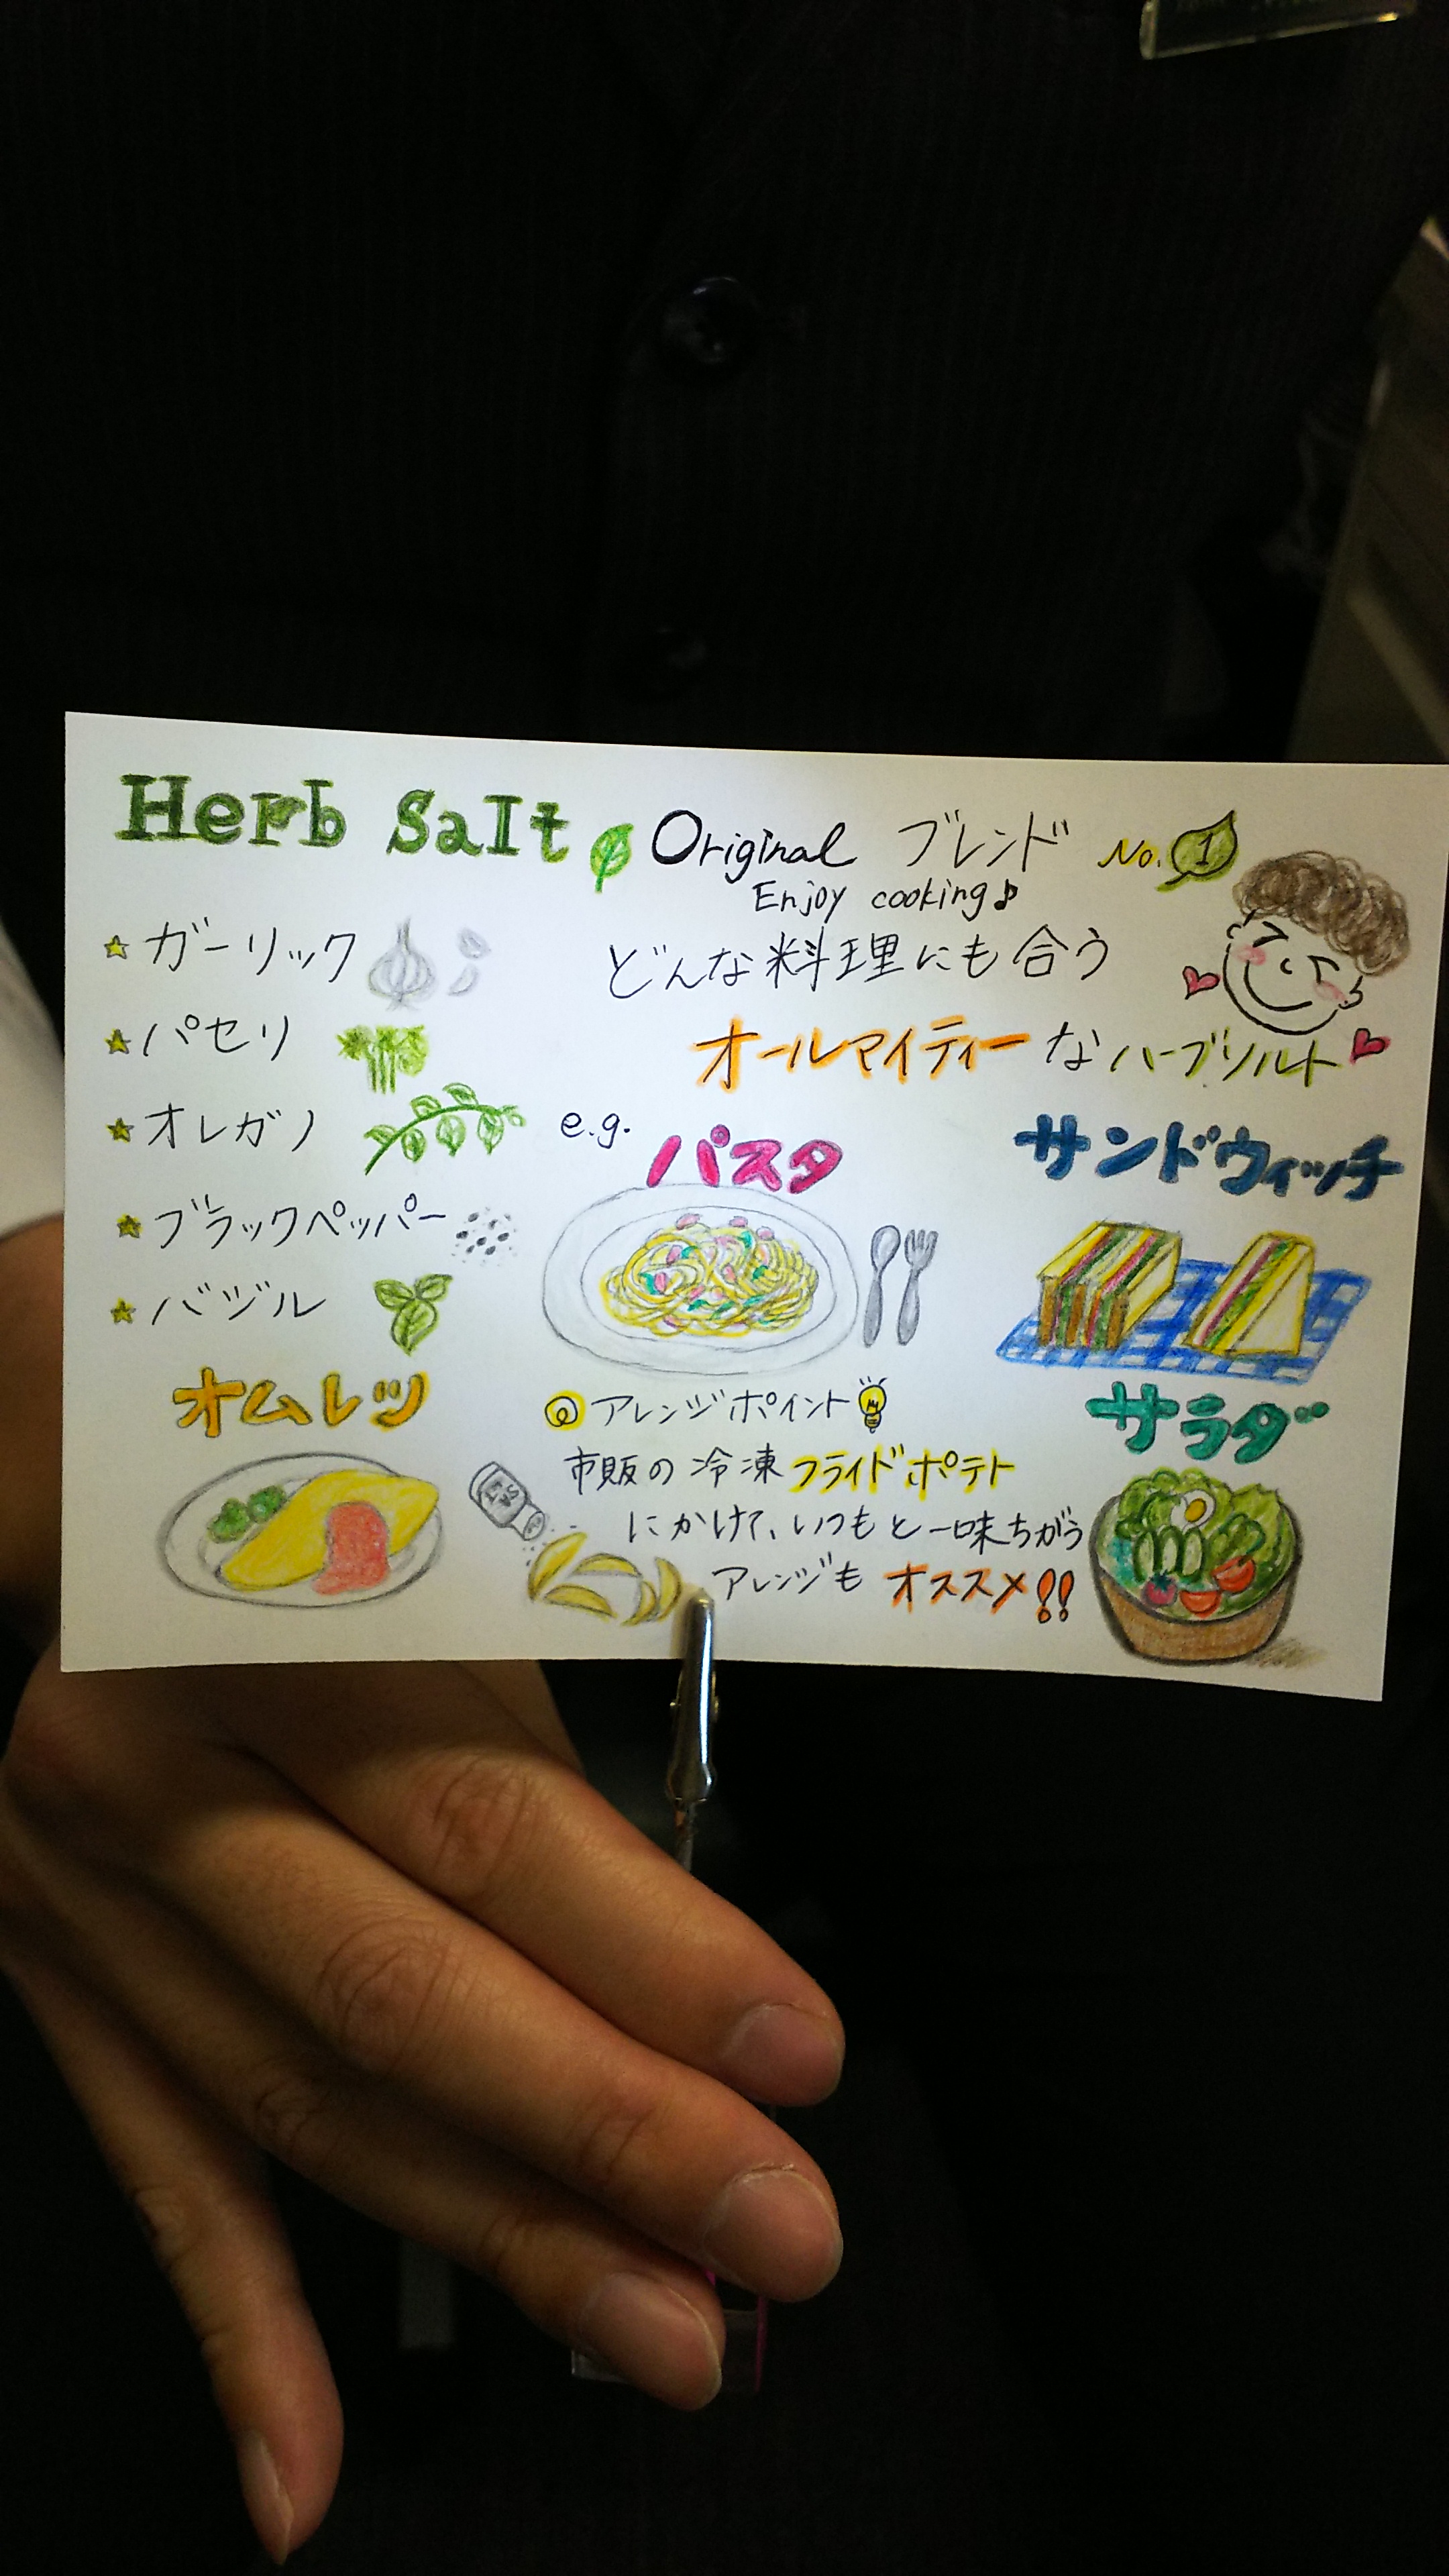 Herb Salt Original ブレンド No.1
Enjoy cooking♪
どんな料理にも合う
オールマイティーなハーブソルト
★ガーリック
★パセリ
★オレガノ
★ブラックペッパー
★バジル
e.g.
パスタ
サンドウィッチ
オムレツ
サラダ
アレンジポイント
市販の冷凍フライドポテト
にかけて、いつもと一味ちがう
アレンジも オススメ!!